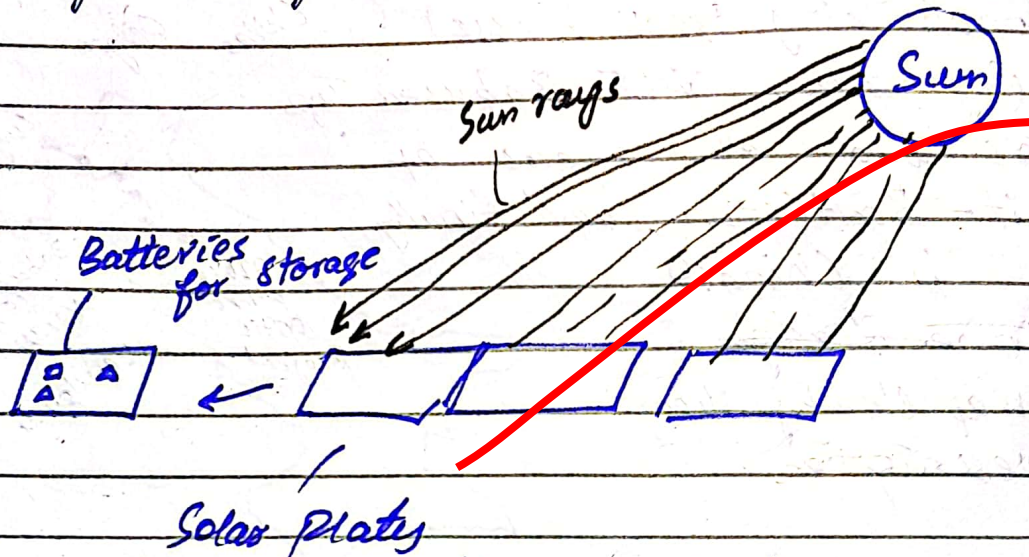 Sun
Sun rays
Batteries
for storage
Solar Plates